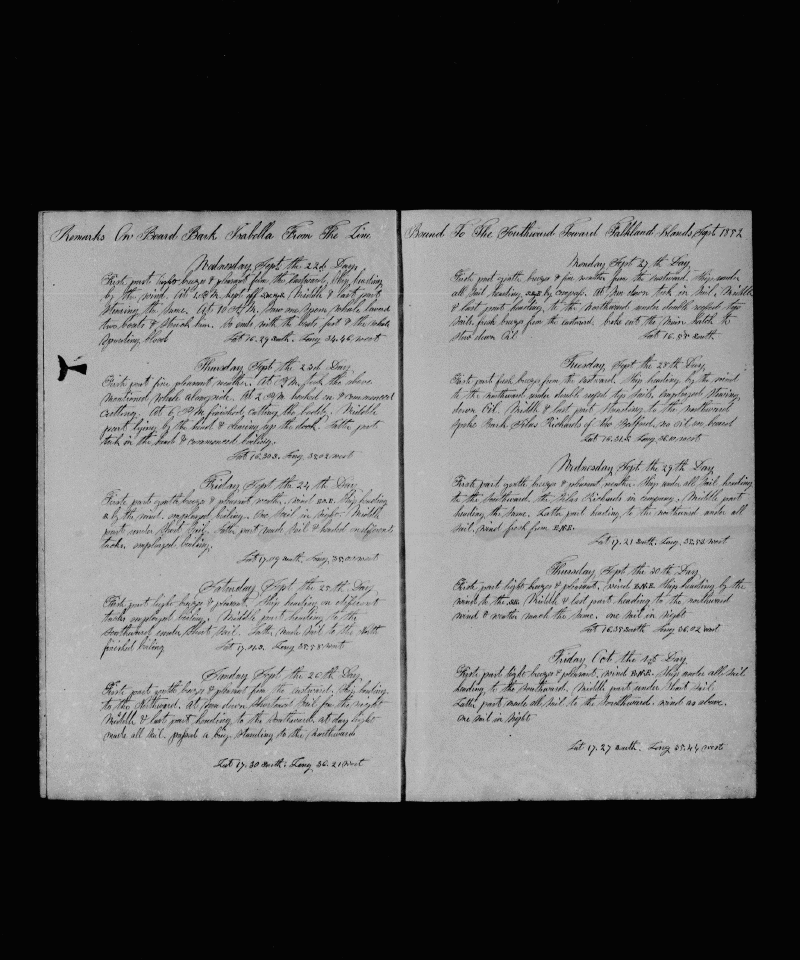 Remarks On Board Bark Isabella From The Line
Wednesday Sept the 22d Day
First part light breeze & pleasant from the Eastward, Ship heading
by the wind. At 2 P.M. kept off Middle & last part
Steering the same. At 10 A.M. Saw one Sperm Whale lowered
two boats & Struck him. So ends with the boats fast & the whale
Spouting blood Lat 16.29 South. Long 34.46 West
Thursday Sept the 23d Day
First part fine pleasant weather. At P.M. took the above
Mentioned Whale alongside. At 2 P.M. hooked on & commenced
cutting. At 6 P.M. finished cutting the body. Middle
part lying by the head & clearing up the deck. Latter part
took in the head & commenced boiling.
Lat 16.50 S. Long 35.02 West
Friday Sept the 24th Day
First part gentle breeze & pleasant weather. Wind Ship heading
by the wind. employed boiling. One Sail in Sight. Middle
part under Short Sail. Latter part made Sail & headed on different
tacks. employed boiling.
Lat 17.09 South. Long 35.00 West
Saturday Sept the 25th Day
First part light breeze & pleasant. Ship heading on different
tacks employed boiling. Middle part heading to the
Southward under Short Sail. Latter made Sail to the North
finished boiling Lat 17.14 S. Long 35.58 West
Sunday Sept the 26th Day
First part gentle breeze & pleasant from the eastward. Ship heading
to the Northward. At Sun down Shortened Sail for the night
Middle & last part heading to the Southward, at day light
made all Sail. passed a brig Standing to the Northward
Lat 17.30 South. Long 36.21 West
Bound To The Southward Toward Falkland Islands, Sept 1852
Monday Sept 27th Day
First part gentle breeze & fine weather from the eastward. Ship under
all Sail heading by compass. At Sun down took in Sail. Middle
& last part heading to the Northward under double reefed top
Sails. fresh breeze from the eastward. broke out the Main hatch to
Stow down Oil Lat 16.55 South.
Tuesday Sept the 28th Day
First part fresh breeze from the eastward. Ship heading by the wind
to the northward under double reefed top Sails. employed Stowing
down Oil. Middle & last part Standing to the northward
Spoke Bark Silas Richards of New Bedford. no oil on board
Lat 16.31 S. Long 36.10 West
Wednesday Sept the 29th Day
First part gentle breeze & pleasant weather. Ship under all Sail heading
to the Southward. the Silas Richards in company. Middle part
heading the same. Latter part heading to the northward under all
Sail. wind fresh from E.N.E.
Lat 17.21 South. Long. 35.52 West
Thursday Sept the 30th Day
First part light breeze & pleasant. wind E.N.E. Ship heading by the
wind to the Middle & last part heading to the northward
wind & weather much the same. one Sail in Sight
Lat 16.35 South Long 36.02 West
Friday Oct the 1st Day
First part light breeze & pleasant, wind E.N.E. Ship under all Sail
heading to the Southward. Middle part under Short Sail.
Latter part made all Sail to the Southward. wind as above.
one Sail in Sight
Lat 17.27 South. Long 35.44 West